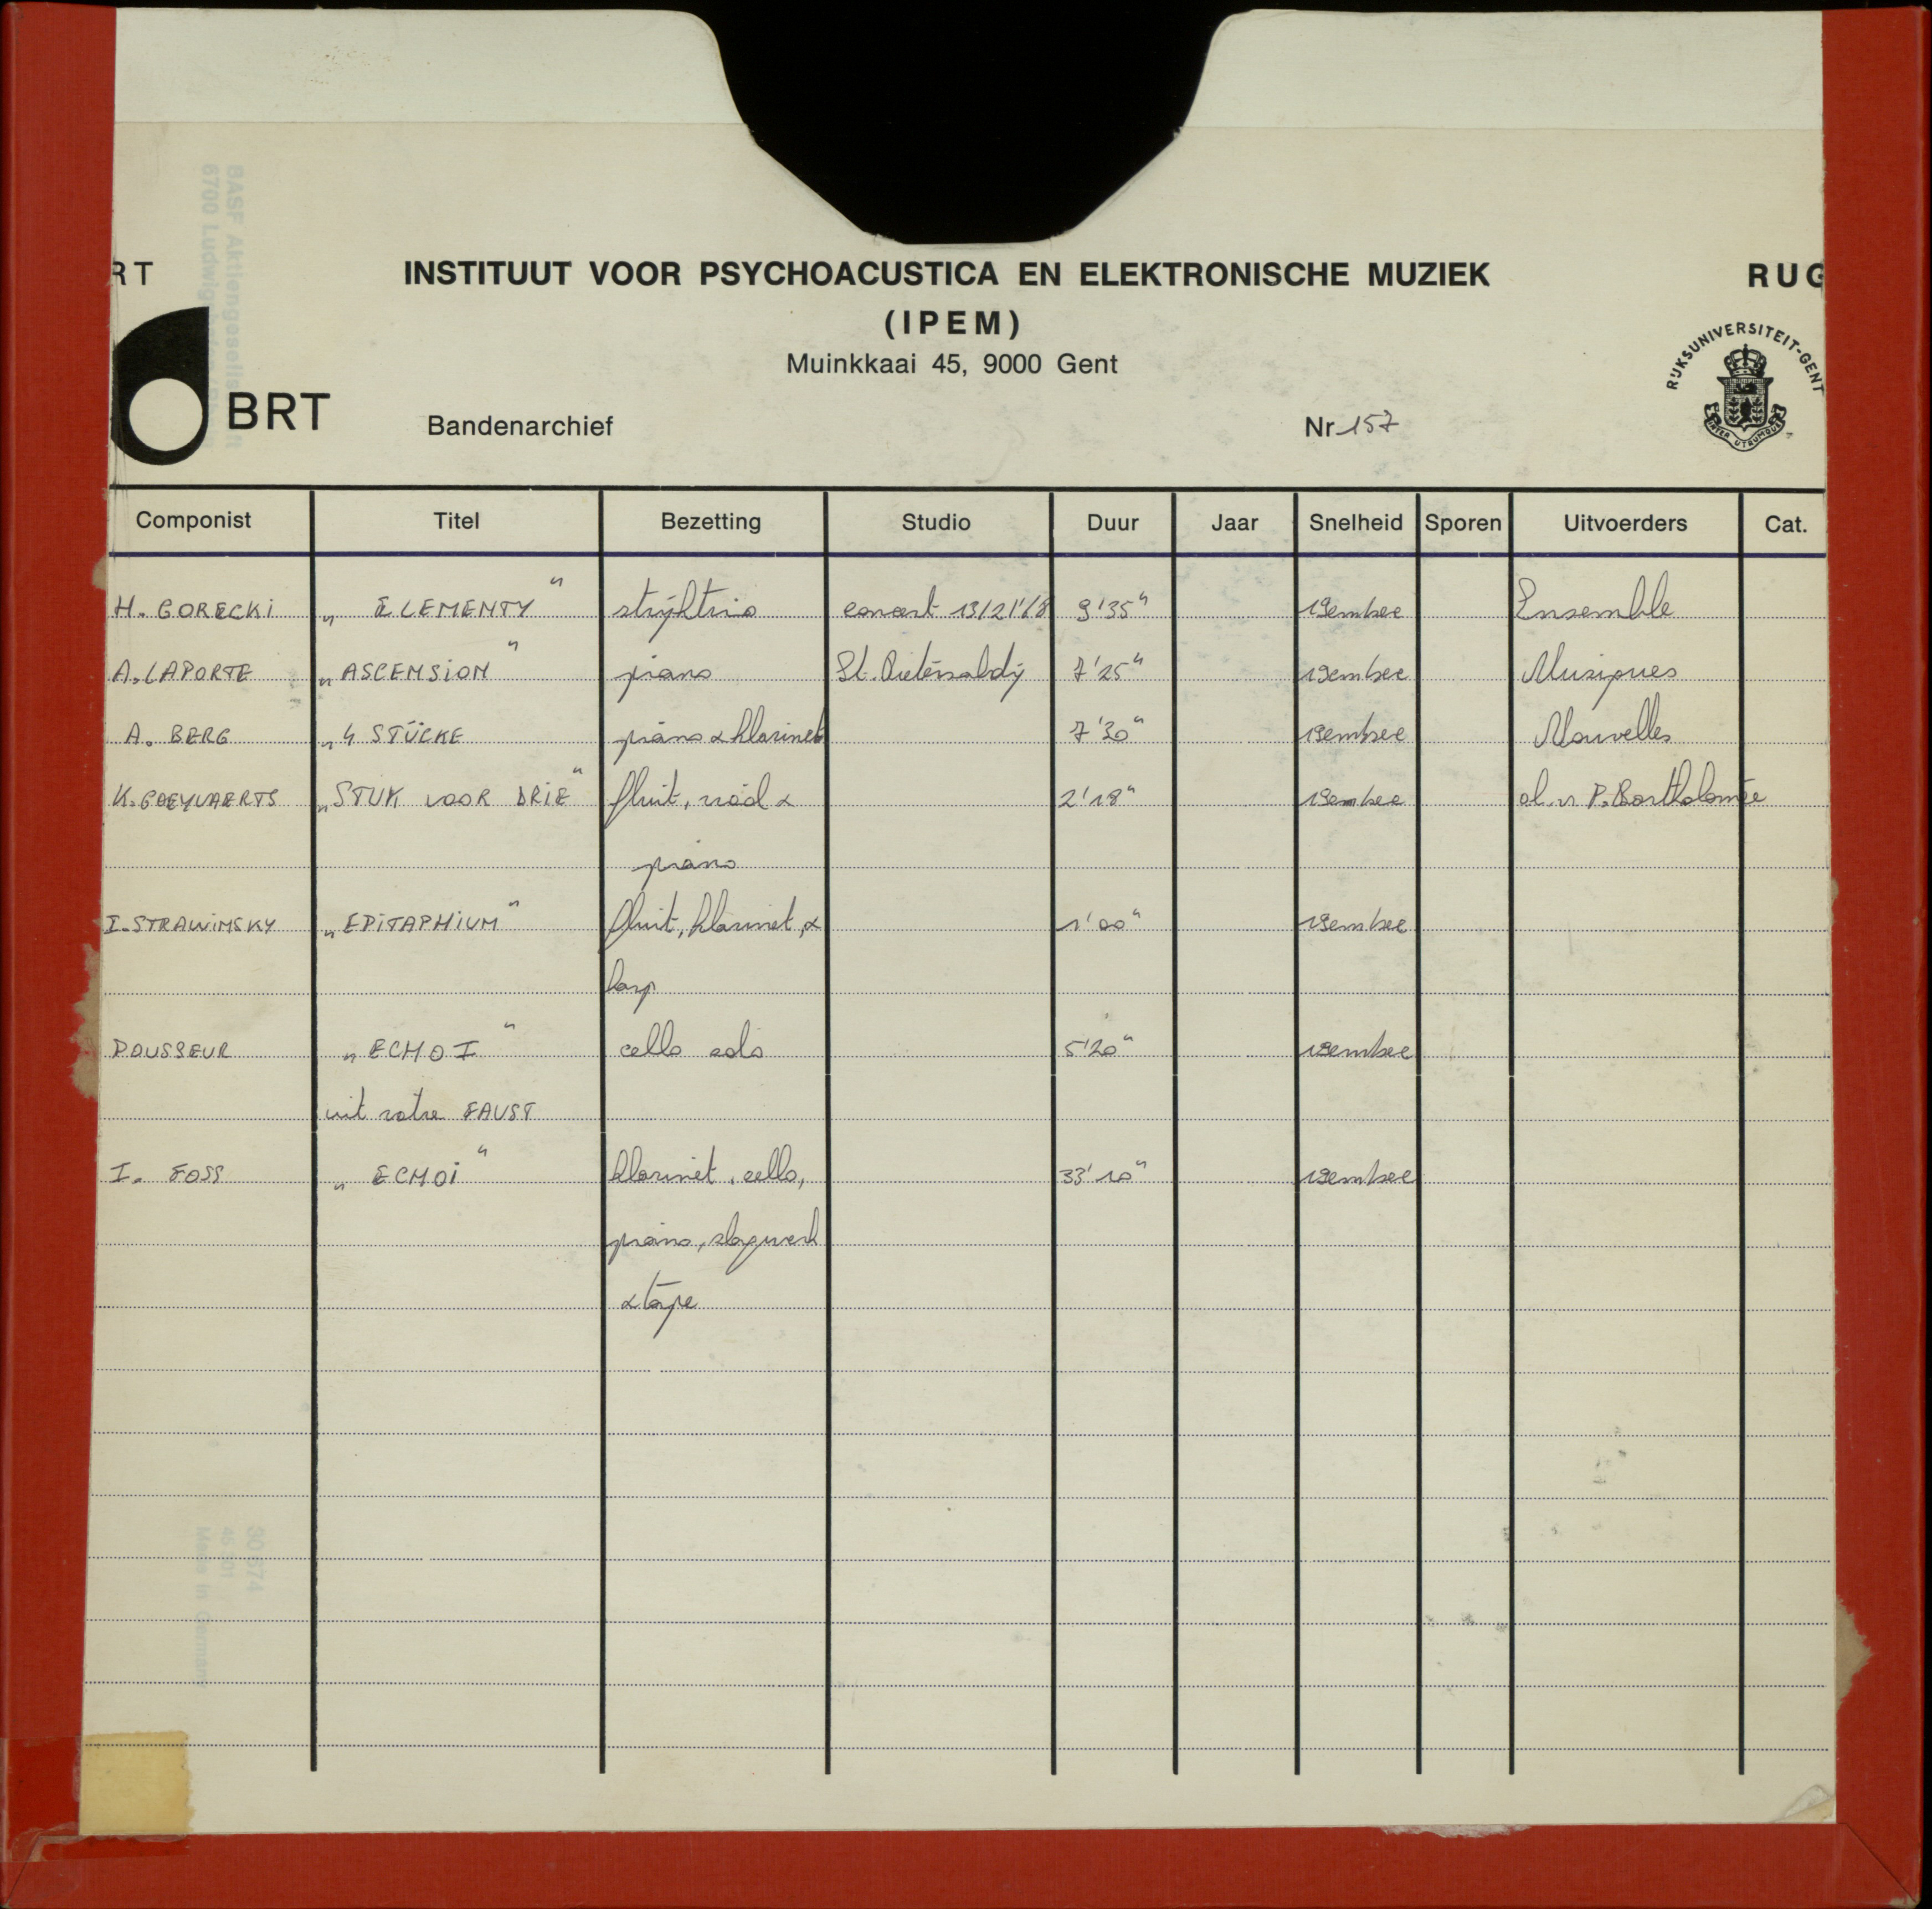 RT INSTITUUT VOOR PSYCHOACUSTICA EN ELEKTRONISCHE MUZIEK RUG
(IPEM)
Muinkkaai 45, 9000 Gent
RIJKSUNIVERSITEIT-GENT
INTER UTRUMQUE
BRT Bandenarchief Nr 157
Componist Titel Bezetting Studio Duur Jaar Snelheid Sporen Uitvoerders Cat.
H. GORECKi „ ELEMENTY " strijktrio concert 13/2/'68 9'35" 19cm/sec Ensemble
A. LAPORTE „ ASCENSiON " piano St. Pietersabdij 7'25" 19cm/sec Musiques
A. BERG „ 4 STÜCKE piano & klarinet 7'30" 19cm/sec Nouvelles
K. GOEYVAERTS „ STUK VOOR DRiE " fluit, viool & 2'18" 19cm/sec ol.v. P. Bartholomée
piano
I. STRAWiNSKY „ EPiTAPHiUM " fluit, klarinet, & 1'00" 19cm/sec
harp
POUSSEUR „ ECHO I " cello solo 5'20" 19cm/sec
uit votre FAUST
I. FOSS „ ECHOi " klarinet, cello, 33'10" 19cm/sec
piano, slagwerk
& tape
BASF Aktiengesellschaft
Made in Germany